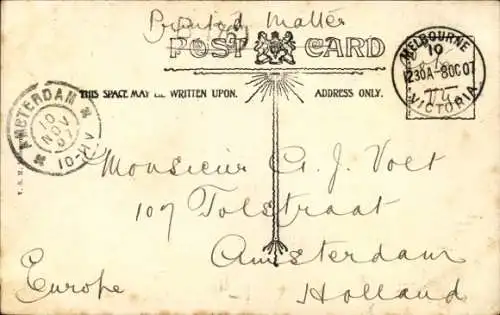 Printed Matter
POST CARD
MELBOURNE
19
12 30A - 8 OC 07
VICTORIA
THIS SPACE MAY BE WRITTEN UPON.
ADDRESS ONLY.
AMSTERDAM
10
NOV
07
10-11V
Monsieur G. J. Volt
107 Tolstraat
Amsterdam
Holland
Europe